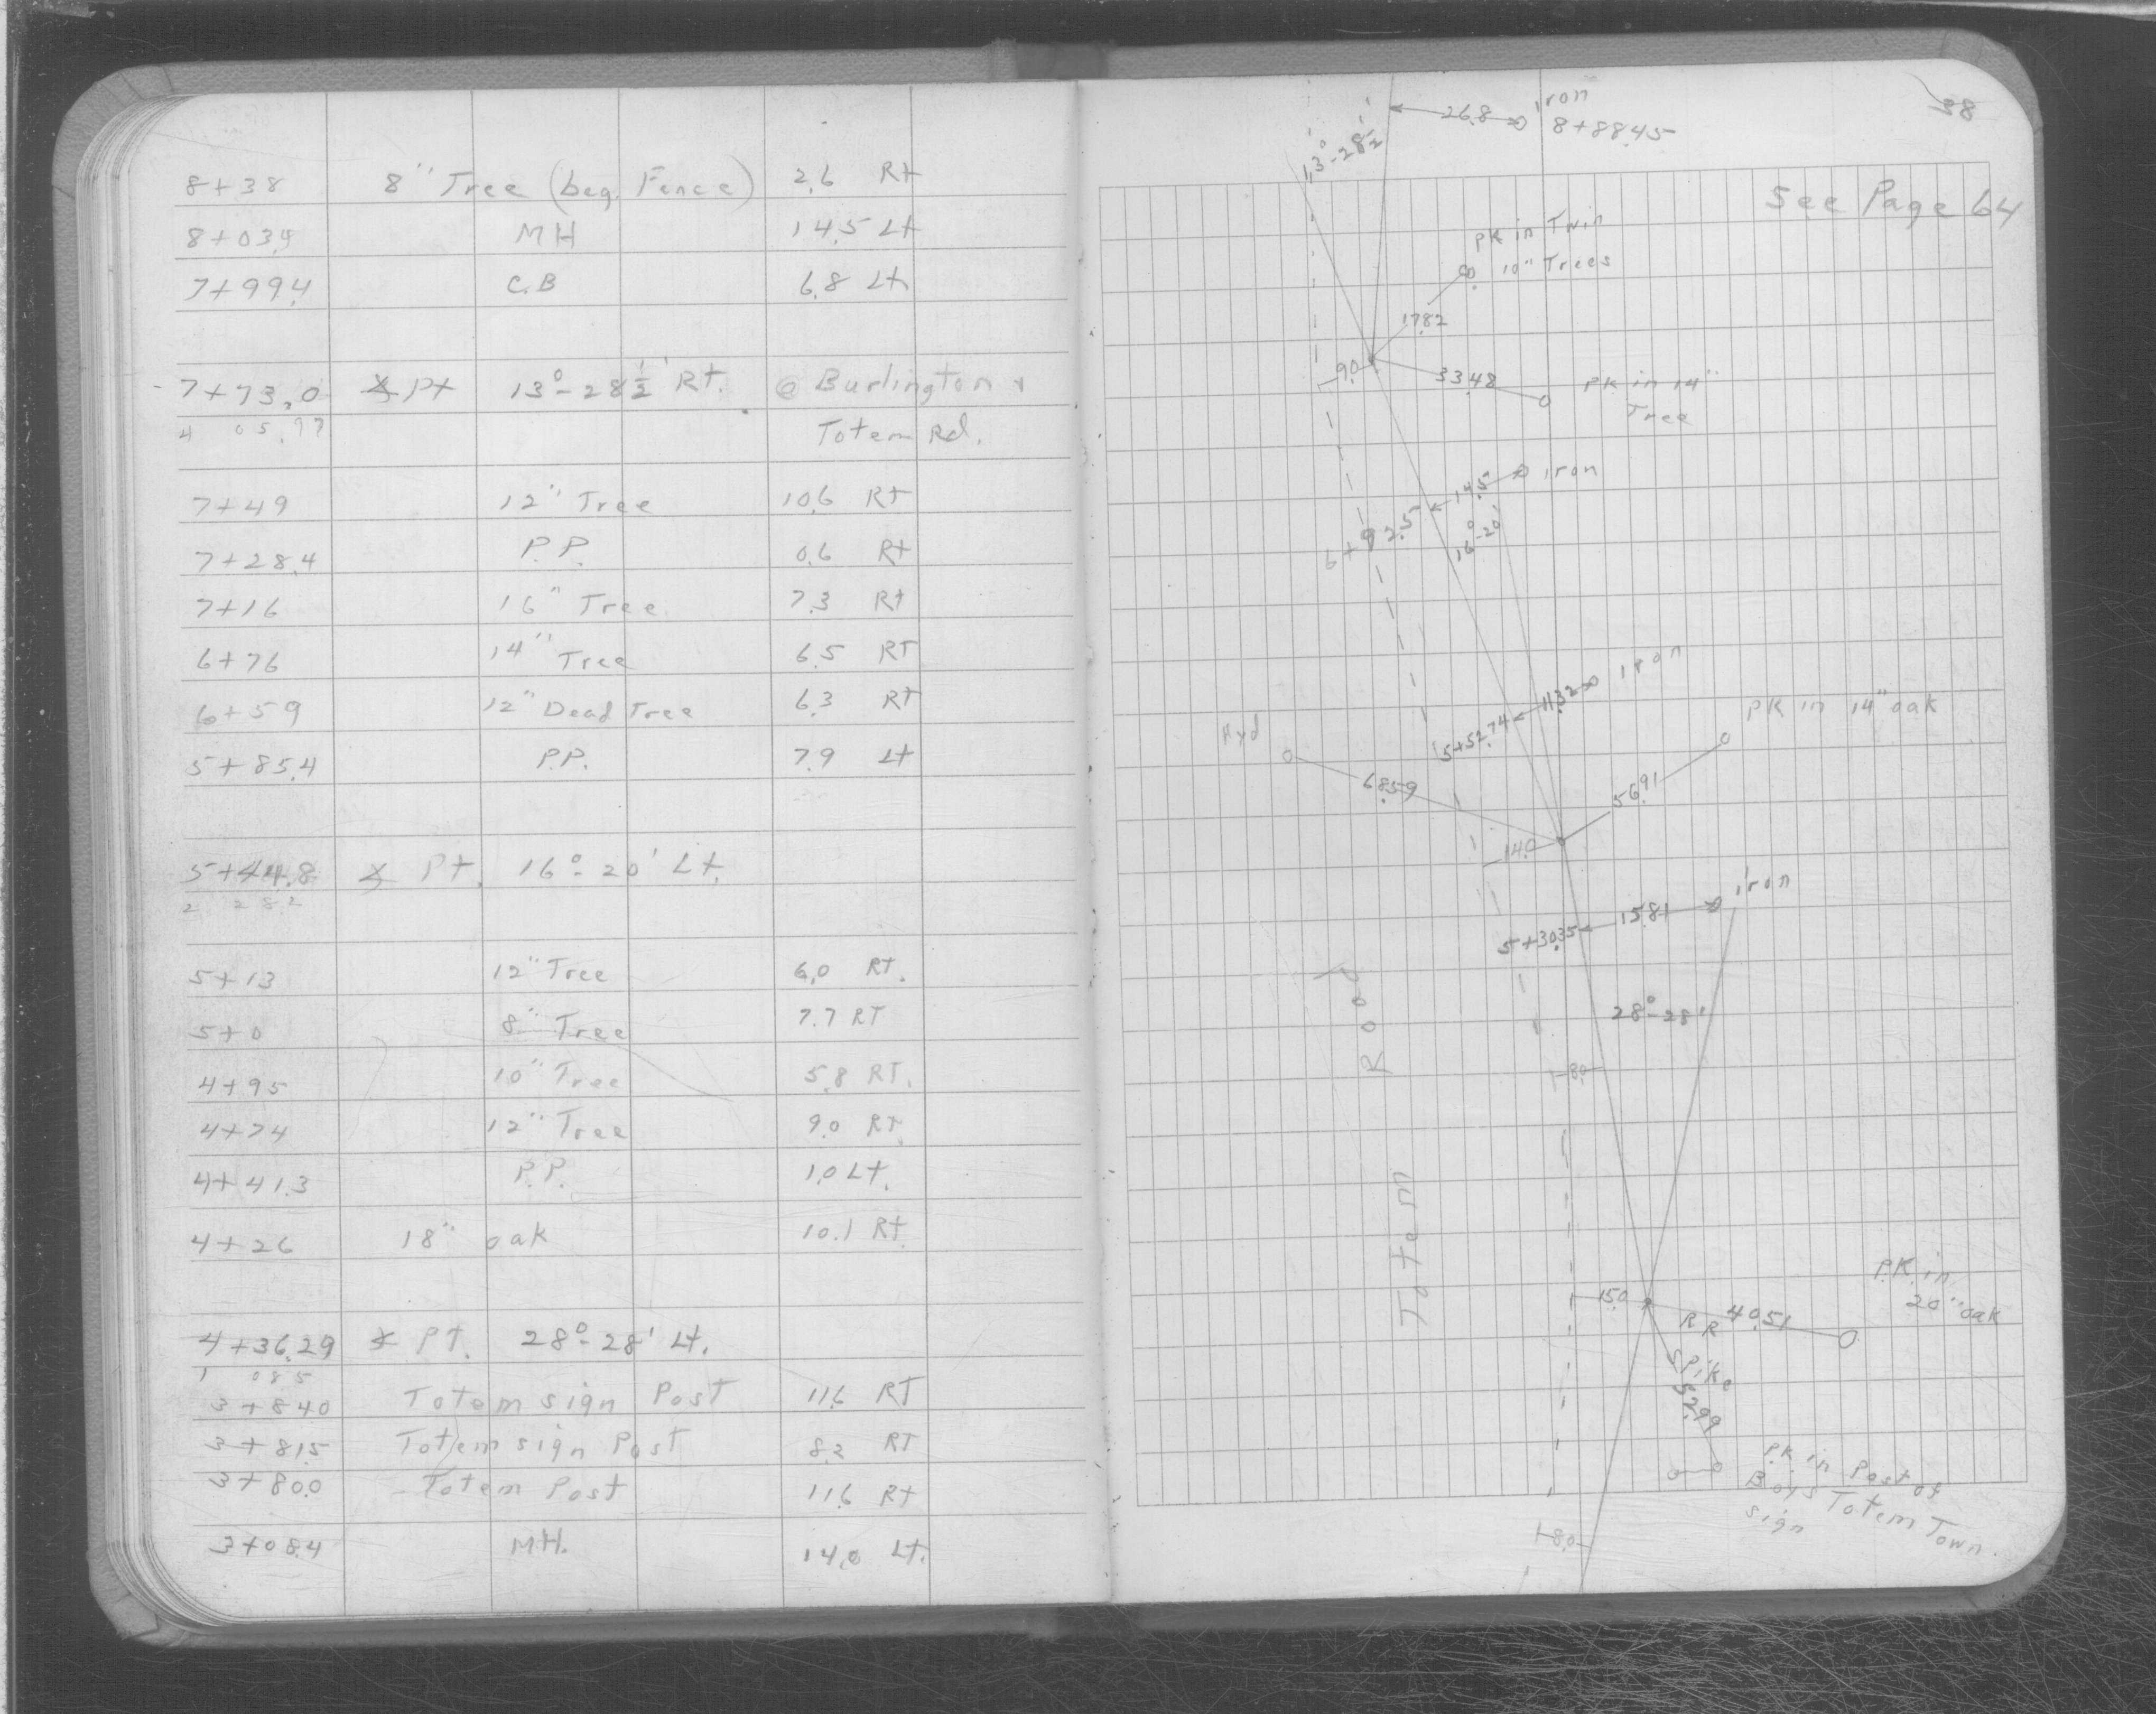 8+38 8" Tree (beg. Fence) 2.6 Rt
8+03.4 MH 14.5 Lt
7+99.4 C.B 6.8 Lt
7+73.0 ∡ Pt 13°-28½' Rt. @ Burlington &
4 05.77 Totem Rd.
7+49 12" Tree 10.6 Rt
7+28.4 P.P. 0.6 Rt
7+16 16" Tree 7.3 Rt
6+76 14" Tree 6.5 RT
6+59 12" Dead Tree 6.3 Rt
5+85.4 P.P. 7.9 Lt
5+44.8 ∡ Pt. 16°-20' Lt.
2 282
5+13 12" Tree 6.0 RT.
5+0 8" Tree 7.7 RT
4+95 10" Tree 5.8 RT.
4+74 12" Tree 9.0 RT.
4+41.3 P.P. 1.0 Lt.
4+26 18" oak 10.1 Rt.
4+36.29 ∡ PT. 28°-28' Lt.
1 085
3+84.0 Totem sign Post 11.6 RT
3+81.5 Totem sign Post 8.2 RT
3+80.0 Totem Post 11.6 Rt
3+08.4 MH. 14.0 Lt.
38
iron
26.8
8+88.45
13°-28½'
See Page 64
PK in Twin
10" Trees
17.82
9.0
33.48
PK in 14"
Tree
14.5
iron
6+92.5
16°-20'
11.32
iron
5+52.74
Hyd
68.59
PK in 14" oak
56.91
14.0
iron
15.81
5+30.35
28°-28'
8.0
Totem Road
15.0
RR
Spike
40.51
P.K. in
20" oak
52.99
P.K. in Post of
Boys Totem Town
sign
8.0